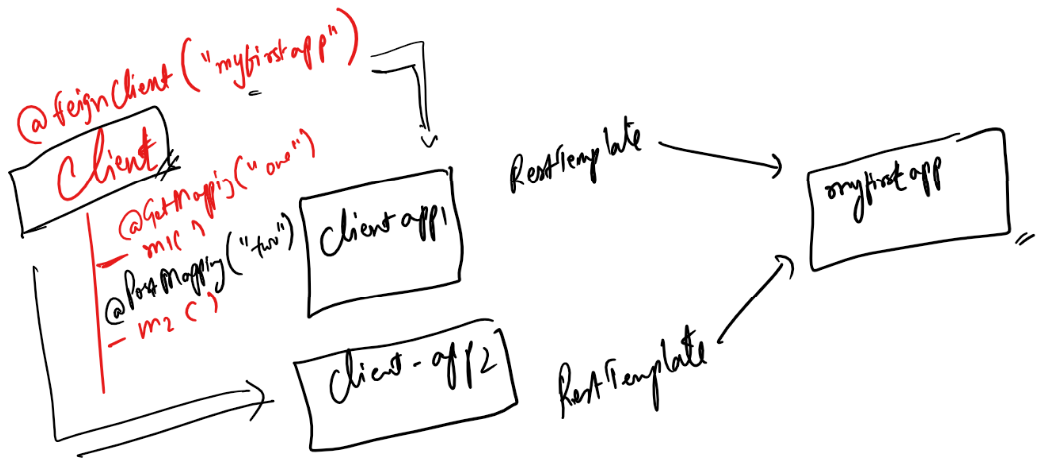 @FeignClient("myfirstapp")
Client
@GetMapping("one")
m1( )
@PostMapping("two")
m2 ( )
Client app1
Client-app2
RestTemplate
RestTemplate
myfirst app